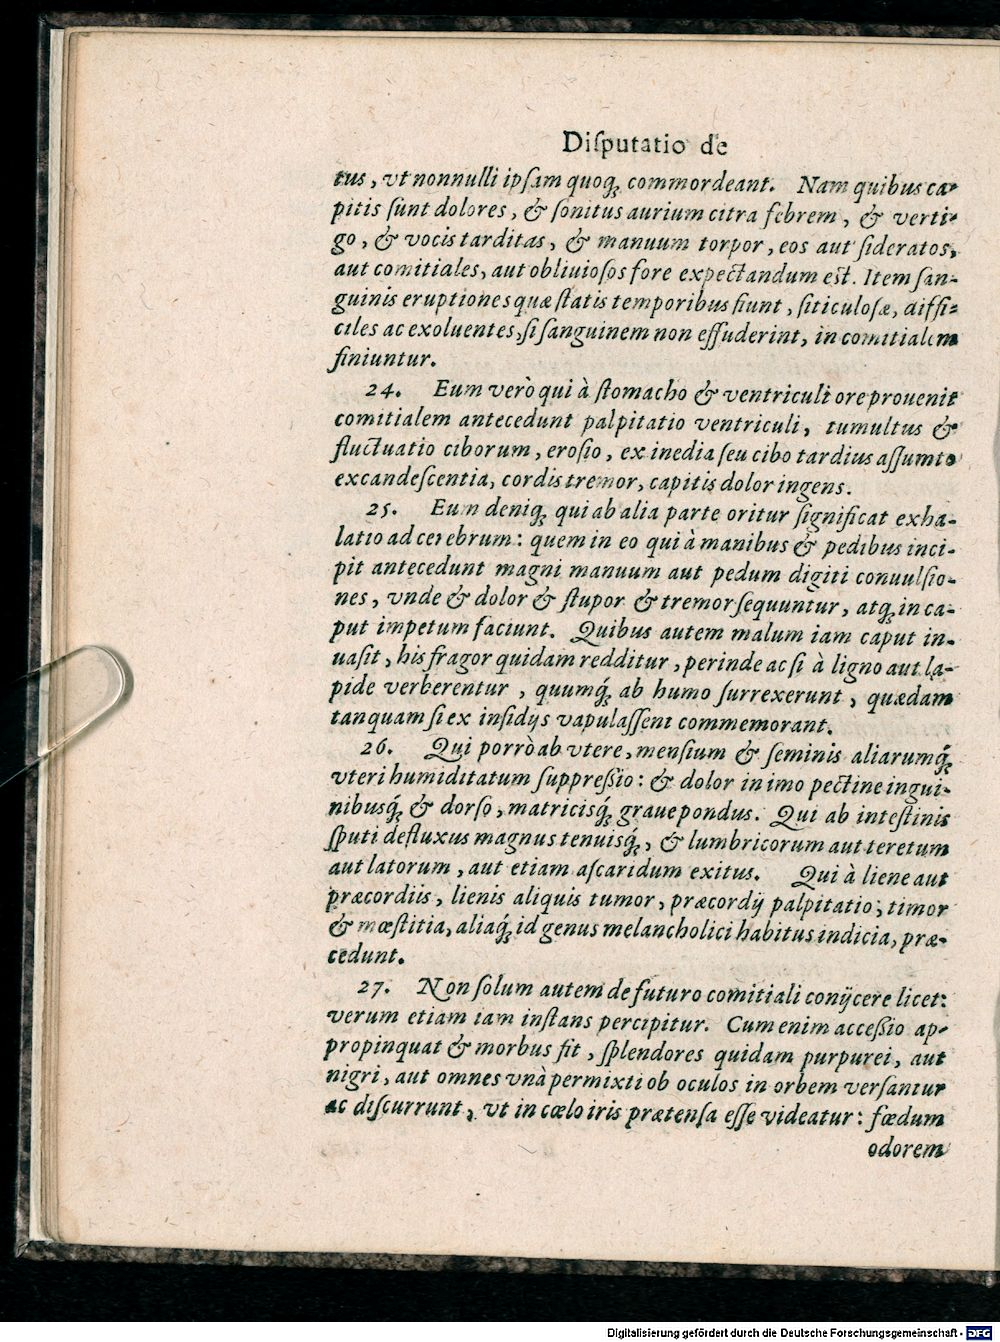 Diſputatio de
tus, vt nonnulli ipſam quoq́; commordeant. Nam quibus ca-
pitis ſunt dolores, & ſonitus aurium citra febrem, & verti-
go, & vocis tarditas, & manuum torpor, eos aut ſideratos,
aut comitiales, aut obliuioſos fore expectandum est. Item ſan-
guinis eruptiones quæ ſtatis temporibus fiunt, ſiticuloſæ, diffi-
ciles ac exoluentes, ſi ſanguinem non effuderint, in comitialem
finiuntur.
24. Eum verò qui à ſtomacho & ventriculi ore prouenit
comitialem antecedunt palpitatio ventriculi, tumultus &
fluctuatio ciborum, eroſio, ex inedia ſeu cibo tardius aſſumto
excandeſcentia, cordis tremor, capitis dolor ingens.
25. Eum deniq; qui ab alia parte oritur ſignificat exha-
latio ad cerebrum: quem in eo qui à manibus & pedibus inci-
pit antecedunt magni manuum aut pedum digiti conuulſio-
nes, vnde & dolor & ſtupor & tremor ſequuntur, atq; in ca-
put impetum faciunt. Quibus autem malum iam caput in-
uaſit, his fragor quidam redditur, perinde ac ſi à ligno aut la-
pide verberentur, quumq́; ab humo ſurrexerunt, quædam
tanquam ſi ex inſidijs vapulaſſent commemorant.
26. Qui porrò ab vtere, menſium & ſeminis aliarumq́;
vteri humiditatum ſuppreſsio: & dolor in imo pectine ingui-
nibusq́; & dorſo, matricisq́; graue pondus. Qui ab inteſtinis
ſputi defluxus magnus tenuisq́;, & lumbricorum aut teretum
aut latorum, aut etiam aſcaridum exitus. Qui à liene aut
præcordiis, lienis aliquis tumor, præcordij palpitatio, timor
& mœſtitia, aliaq́; id genus melancholici habitus indicia, præ-
cedunt.
27. Non ſolum autem de futuro comitiali conijcere licet:
verum etiam iam inſtans percipitur. Cum enim acceſsio ap-
propinquat & morbus fit, ſplendores quidam purpurei, aut
nigri, aut omnes vnà permixti ob oculos in orbem verſantur
ac diſcurrunt, vt in cœlo iris prætenſa eſſe videatur: fœdum
odorem
Digitalisierung gefördert durch die Deutsche Forschungsgemeinschaft - DFG